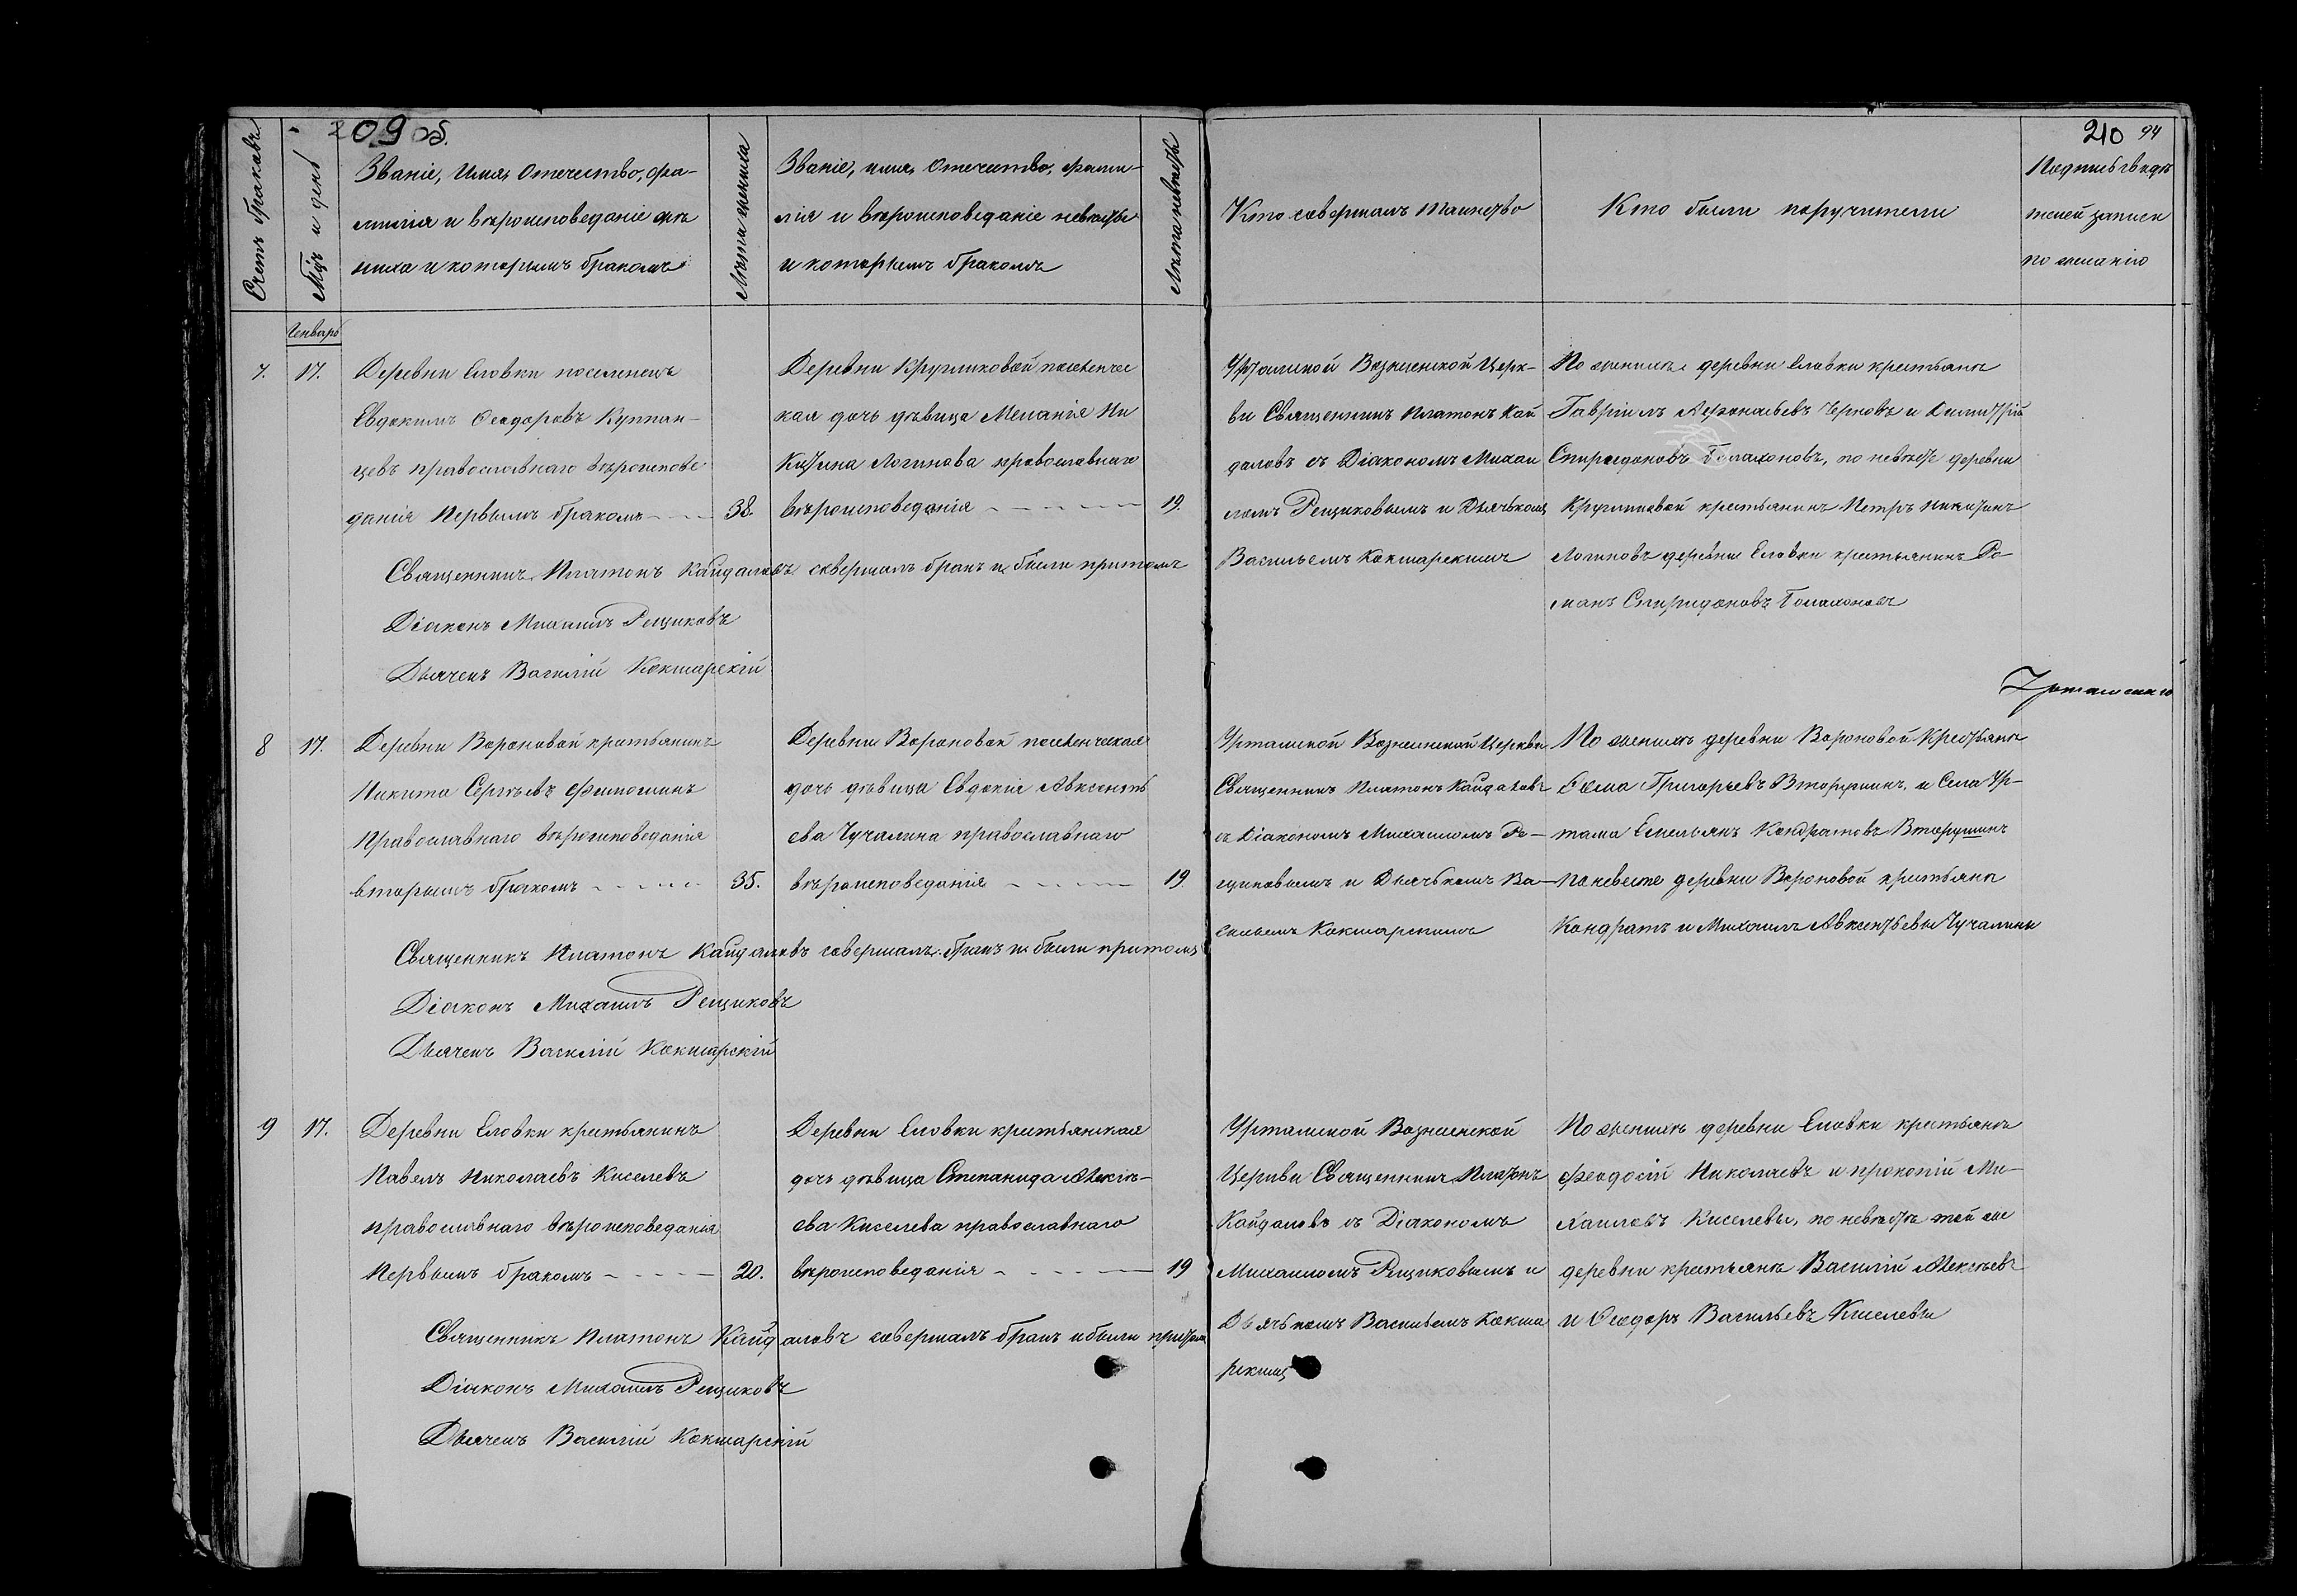 209 об.
210 94
Счетъ браковъ
Мцъ и день
Званіе, Имя, Отечество, фа-
милія и вѣроисповеданіе же
ниха и которымъ бракомъ
Лѣта жениха
Званіе, имя, Отечество, фами-
лія и вѣроисповеданіе невѣсты
и которымъ бракомъ
Лѣта невѣсты
Кто совершалъ таинство
Кто были поручители
Подпись свидѣ
телей записи
по желанію
Генварь
7.
17.
Деревни Еловки поселенецъ
Евдокимъ Ѳеодоровъ
цевъ православнаго вѣроиспове
данія Первымъ бракомъ
38.
Деревни Кругликовой поселенчес
кая дочь дѣвица Меланія Ни
китина Логинова православнаго
вѣроисповеданія
19.
Уртамской Вознесенской Церк-
ви Священникъ Платонъ Кай
даловъ съ Діакономъ Михаи
ломъ Рещиковымъ и Дьячькомъ
Васильемъ Кокшарскимъ
По женихѣ деревни Еловки крестьяне
Гавріилъ Черновъ и Димитрій
Спиридоновъ Голахоновъ, по невѣсте деревни
Кругликовой крестьянинъ Петръ Никитинъ
Логиновъ деревни Еловки крестьянинъ Ро
манъ Спиридоновъ Голахоновъ
Священникъ Платонъ Кайдаловъ совершалъ бракъ и были притомъ
Діаконъ Михаилъ Рещиковъ
Дьячекъ Василій Кокшарскій
Уртамскаго
8
17.
Деревни Вороновой крестьянинъ
Никита Сергѣевъ Филюшинъ
Православнаго вѣроисповеданія
вторымъ бракомъ
35.
Деревни Вороновой поселенческая
дочь дѣвица Евдокія Авксентъ
ева Чучалина православнаго
вѣроисповеданія
19
Уртамской Вознесенской Церкви
Священникъ Платонъ Кайдаловъ
съ Діакономъ Михаиломъ Ре-
щиковымъ и Дьячькомъ Ва-
сильемъ Кокшарскимъ
По женихѣ деревни Вороновой Крестьяне
Ѳома Григорьевъ Вторушинъ, и Села Ур-
тама Емельянъ Кондратовъ Вторушинъ
по невѣсте деревни Вороновой крестьяне
Кондратъ и Михаилъ Авксентьевы Чучалины
Священникъ Платонъ Кайдаловъ совершалъ бракъ и были притомъ
Діаконъ Михаилъ Рещиковъ
Дьячекъ Василій Кокшарскій
9
17.
Деревни Еловки крестьянинъ
Павелъ Николаевъ Киселевъ
православнаго вѣроисповеданія
Первымъ бракомъ
20.
Деревни Еловки крестьянская
дочь дѣвица Степанида Алексѣ-
ева Киселева православнаго
вѣроисповеданія
19
Уртамской Вознесенской
Церкви Священникъ Платонъ
Кайдаловъ съ Діакономъ
Михаиломъ Рещиковымъ и
Дьячькомъ Васильемъ Кокша
рскимъ
По женихѣ деревни Еловки крестьяне
Феодосій Николаевъ и Прокопій Ми-
хаиловъ Киселевы, по невѣсте той же
деревни крестьяне Василій Алексѣевъ
и Ѳеодоръ Васильевъ Киселевы
Священникъ Платонъ Кайдаловъ совершалъ бракъ и были притомъ
Діаконъ Михаилъ Рещиковъ
Дьячекъ Василій Кокшарскій